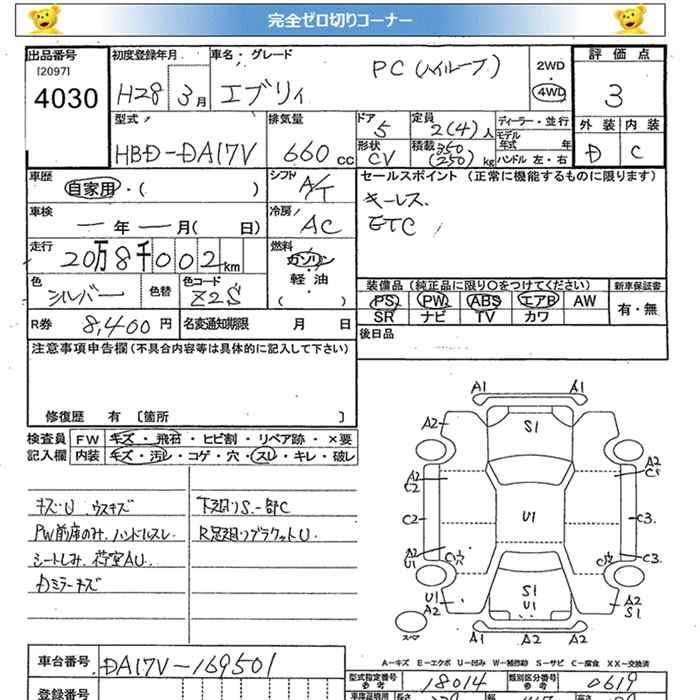 完全ゼロ切りコーナー
出品番号 初度登録年月 車名・グレード 評価点
[2097]
4030 H28 3月 エブリィ PC(ハイルーフ) 2WD・4WD 3
型式 排気量 ドア 定員 ディーラー・並行 外装 内装
HBD-DA17V 660cc 5 2(4)人 モデル年式 年 D C
形状 CV 積載 350(250)kg ハンドル 左・右
車歴 シフト セールスポイント(正常に機能するものに限ります)
自家用・( ) A/T キーレス.
車検 冷房 ETC
ー年ー月( 日) AC
走行 燃料
20万8千002km ガソリン
軽油
( )
色 色替 色コード 装備品(純正品に限り○をつけてください) 新車保証書
シルバー Z2S PS PW ABS エアB AW 有・無
SR ナビ TV カワ
R券 8,400円 名変通知期限 月 日 後日品
注意事項申告欄(不具合内容等は具体的に記入して下さい)
修復歴 有 [箇所 ]
検査員 FW キズ・飛石・ヒビ割・リペア跡・×要
記入欄 内装 キズ・汚レ・コゲ・穴・スレ・キレ・破レ
キズU ウスキズ 下廻りS.一部C
PW前席のみ.ハンドルスレ R足廻りブラケットU.
シートしみ.荷室AU.
Dミラーキズ
A1 A1
A2 S1 A2
A2 C2 A2 C1
C2 U1 C3.
A2 U1 C穴 C穴 C3
U1 A2 S1 U1 A2 S1
スペア A2 A2
A-キズ E-エクボ U-凹み W-補修跡 S-サビ C-腐食 XX-交換済
車台番号 DA17V-169501
型式指定番号 参考 18014 類別区分番号 参考 0619
登録番号
車庫証明用 参考 長さ 幅 高さ